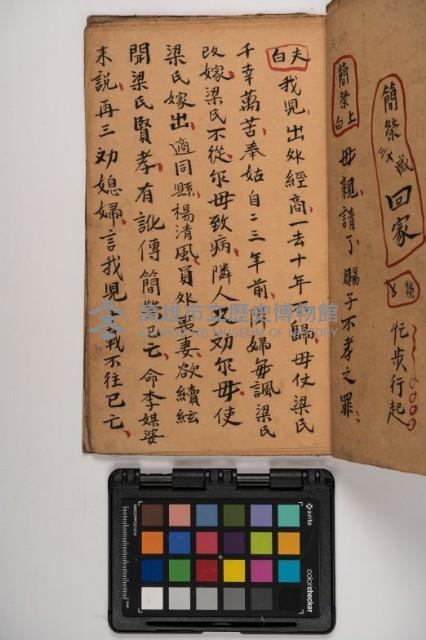 簡榮
回家
忙步行起
簡榮上白
母親請了賜子不孝之罪
夫白
我兒出外經商一去十年不歸毋仗梁氏
千辛萬苦奉姑自二三年前婦每諷梁氏
改嫁梁氏不從尔毋致病隣人又劝尔毋使
梁氏嫁出適同縣楊清風員外喪妻欲續絃
聞梁氏賢孝有訛傳簡榮已亡命李媒婆
來說再三劝媳婦言我兒我不往已亡
高雄市立歷史博物館
KAOHSIUNG MUSEUM OF HISTORY
x-rite
colorchecker